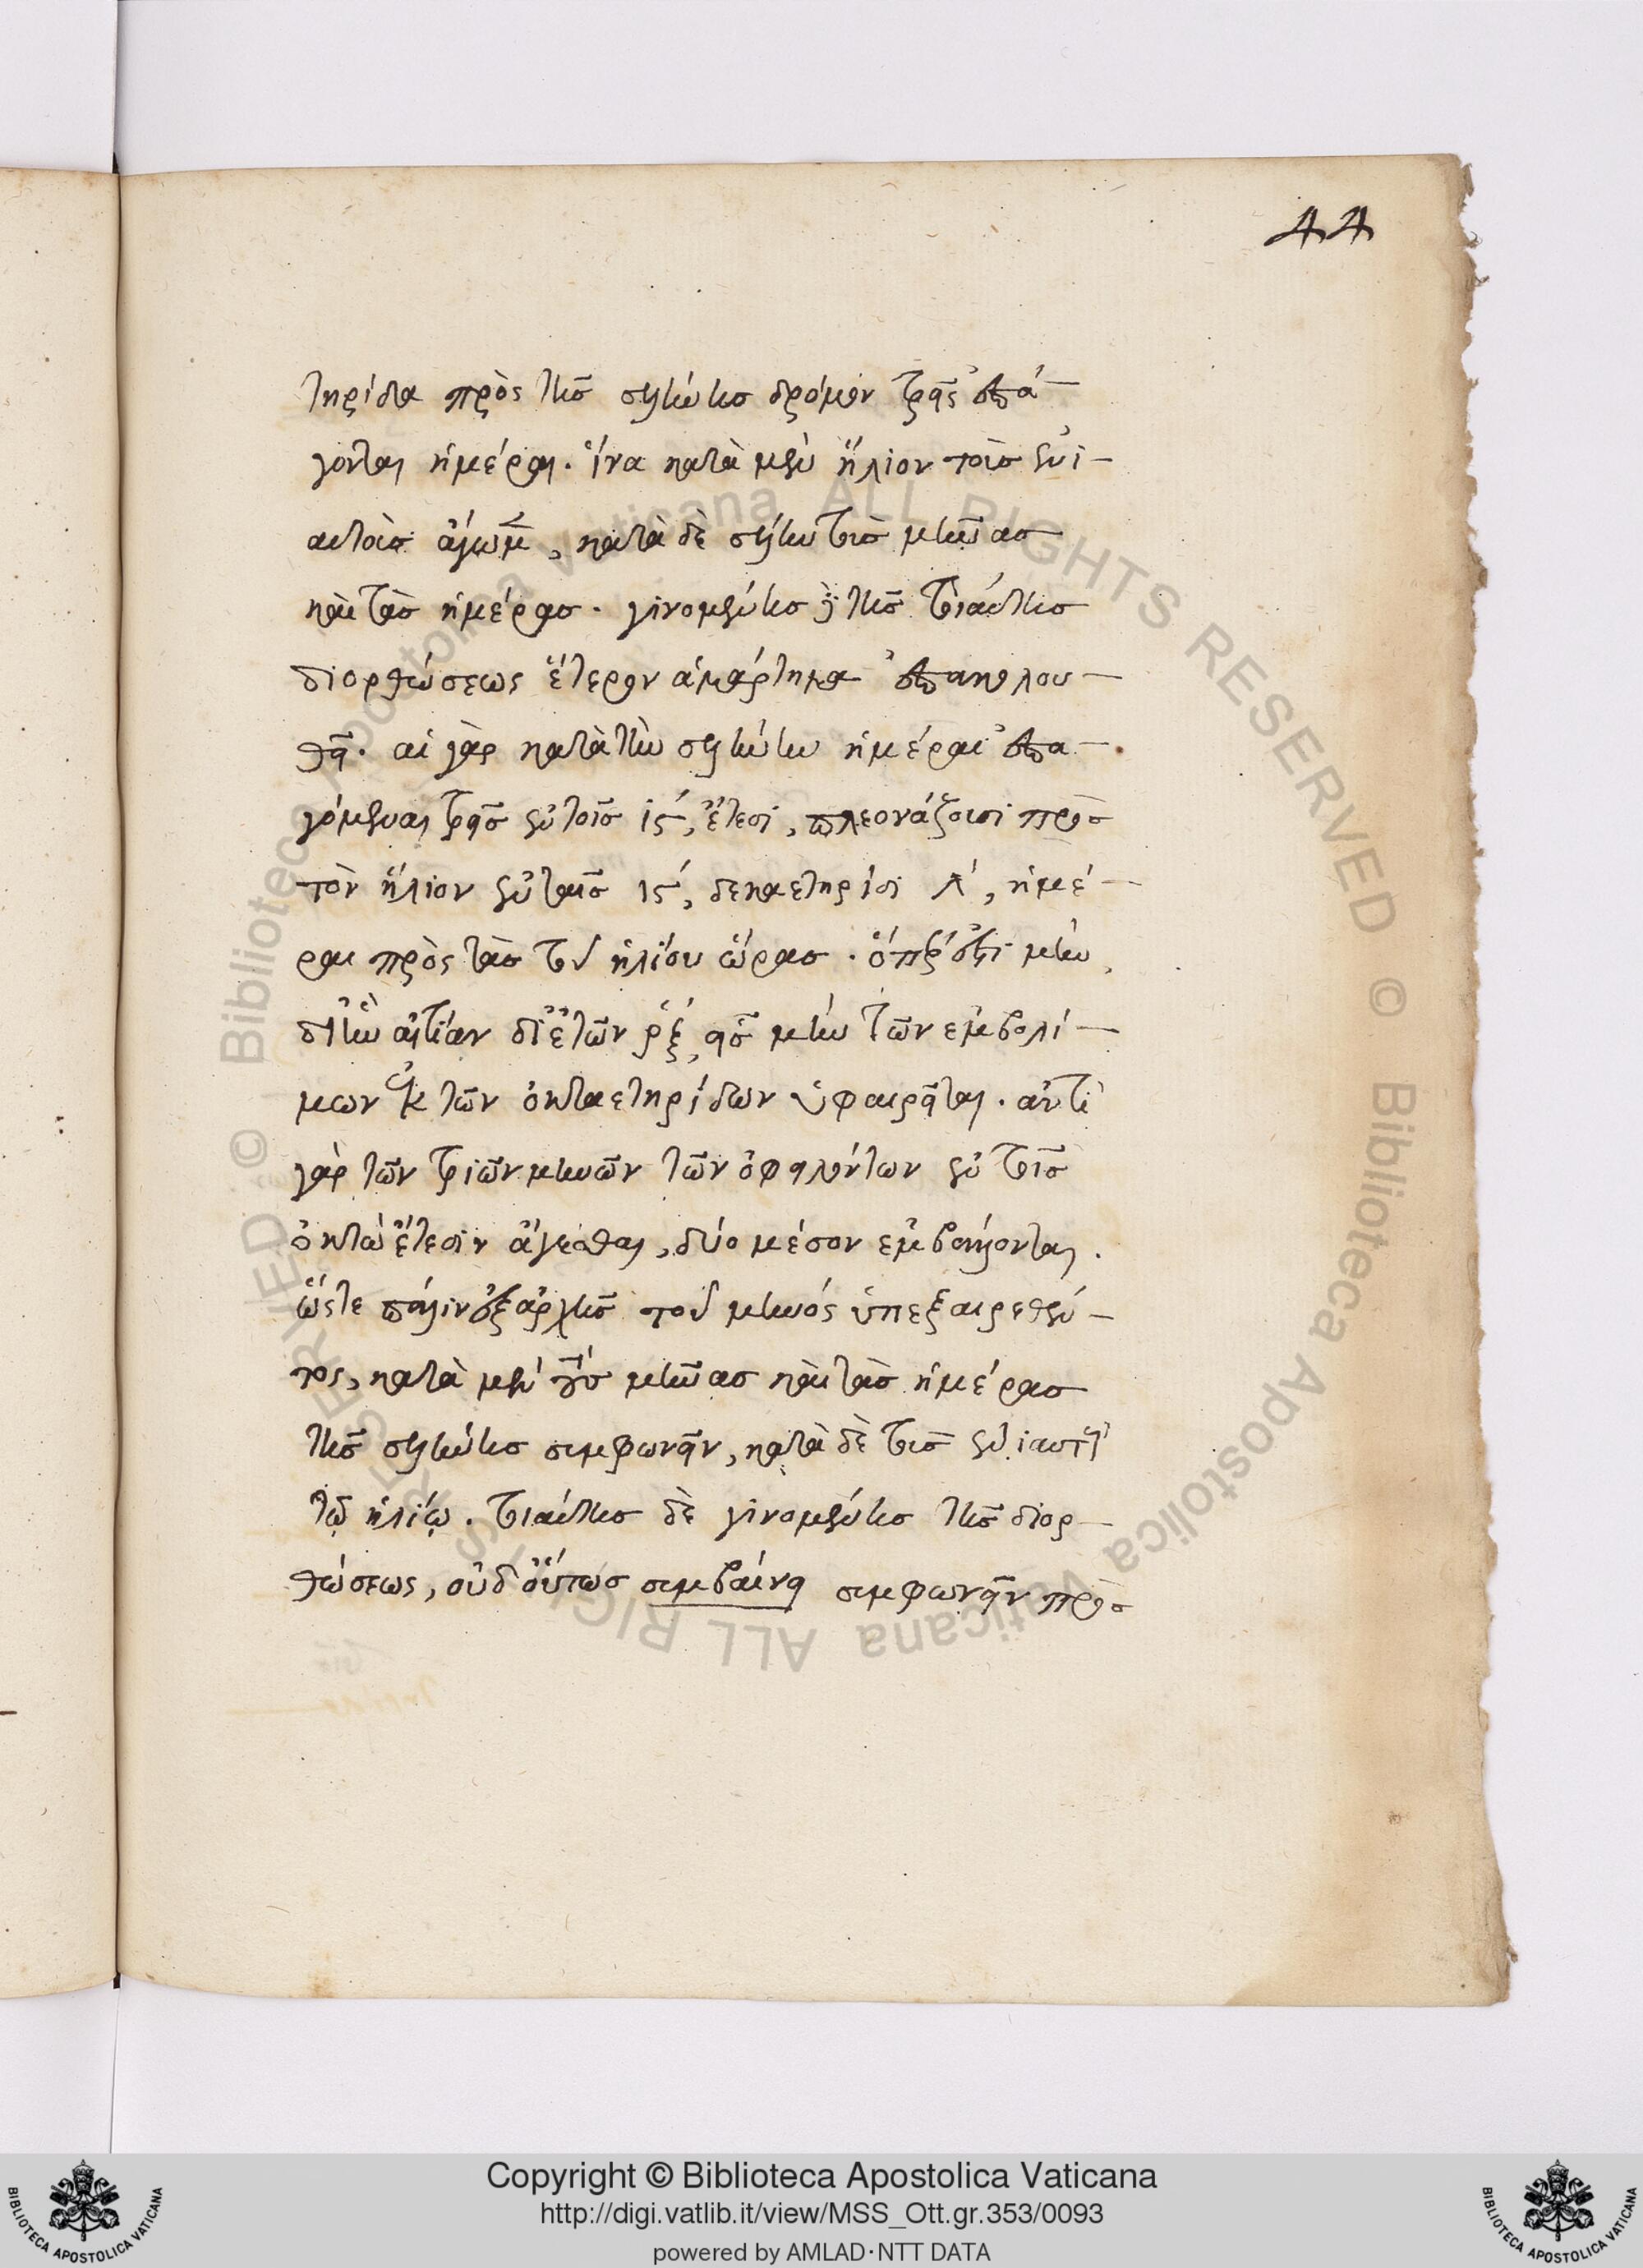 44
τηρίδα πρὸς τῆς σελήνης δρόμον τρεῖς ἐπά-
γονται ἡμέραι. ἵνα κατὰ μὲν ἥλιον τοὺς ἐνι-
αυτοὺς ἄγωμεν, κατὰ δὲ σελήνην τοὺς μῆνας
καὶ τὰς ἡμέρας. γινομένης δὲ τῆς τοιαύτης
διορθώσεως ἕτερον ἁμάρτημα ἐπακολου-
θεῖ. αἱ γὰρ κατὰ τὴν σελήνην ἡμέραι ἐπα-
γόμεναι τρεῖς ἐν τοῖς ις΄, ἔτεσι, πλεονάζουσι πρὸς
τὸν ἥλιον ἐν ταῖς ις΄, δεκαετηρίσι λ΄, ἡμέ-
ραι πρὸς τὰς τοῦ ἡλίου ὥρας. ὅπερ ἐστὶ μὴν,
δι' ἣν αἰτίαν δι' ἐτῶν ρξ΄, εἷς μὴν τῶν ἐμβολί-
μων ἐκ τῶν ὀκταετηρίδων ὑφαιρεῖται. ἀντὶ
γὰρ τῶν τριῶν μηνῶν τῶν ὀφειλόντων ἐν τοῖς
ὀκτὼ ἔτεσιν ἄγεσθαι, δύο μέσον ἐμβάλλονται.
ὥστε πάλιν ἐξ ἀρχῆς τοῦ μηνός ὑπεξαιρεθέν-
τος, κατὰ μὲν τοὺς μῆνας καὶ τὰς ἡμέρας
τῆς σελήνης συμφωνεῖν, κατὰ δὲ τοὺς ἐνιαυτοὺς
τῷ ἡλίῳ. τοιαύτης δὲ γινομένης τῆς διορ-
θώσεως, οὐδ' οὕτως συμβαίνει συμφωνεῖν πρὸς
© Biblioteca Apostolica Vaticana ALL RIGHTS RESERVED © Biblioteca Apostolica Vaticana ALL RIGHTS RESERVED
Copyright © Biblioteca Apostolica Vaticana
http://digi.vatlib.it/view/MSS_Ott.gr.353/0093
powered by AMLAD·NTT DATA
BIBLIOTECA APOSTOLICA VATICANA
BIBLIOTECA APOSTOLICA VATICANA